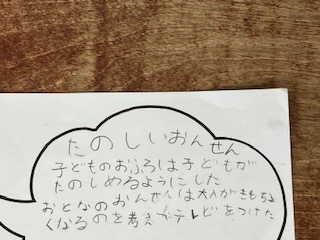 たのしいおんせん
子どものおふろは子どもが
たのしめるようにした
おとなのおんせんは大人がきもちよ
くなるのを考えがテレビをつけた